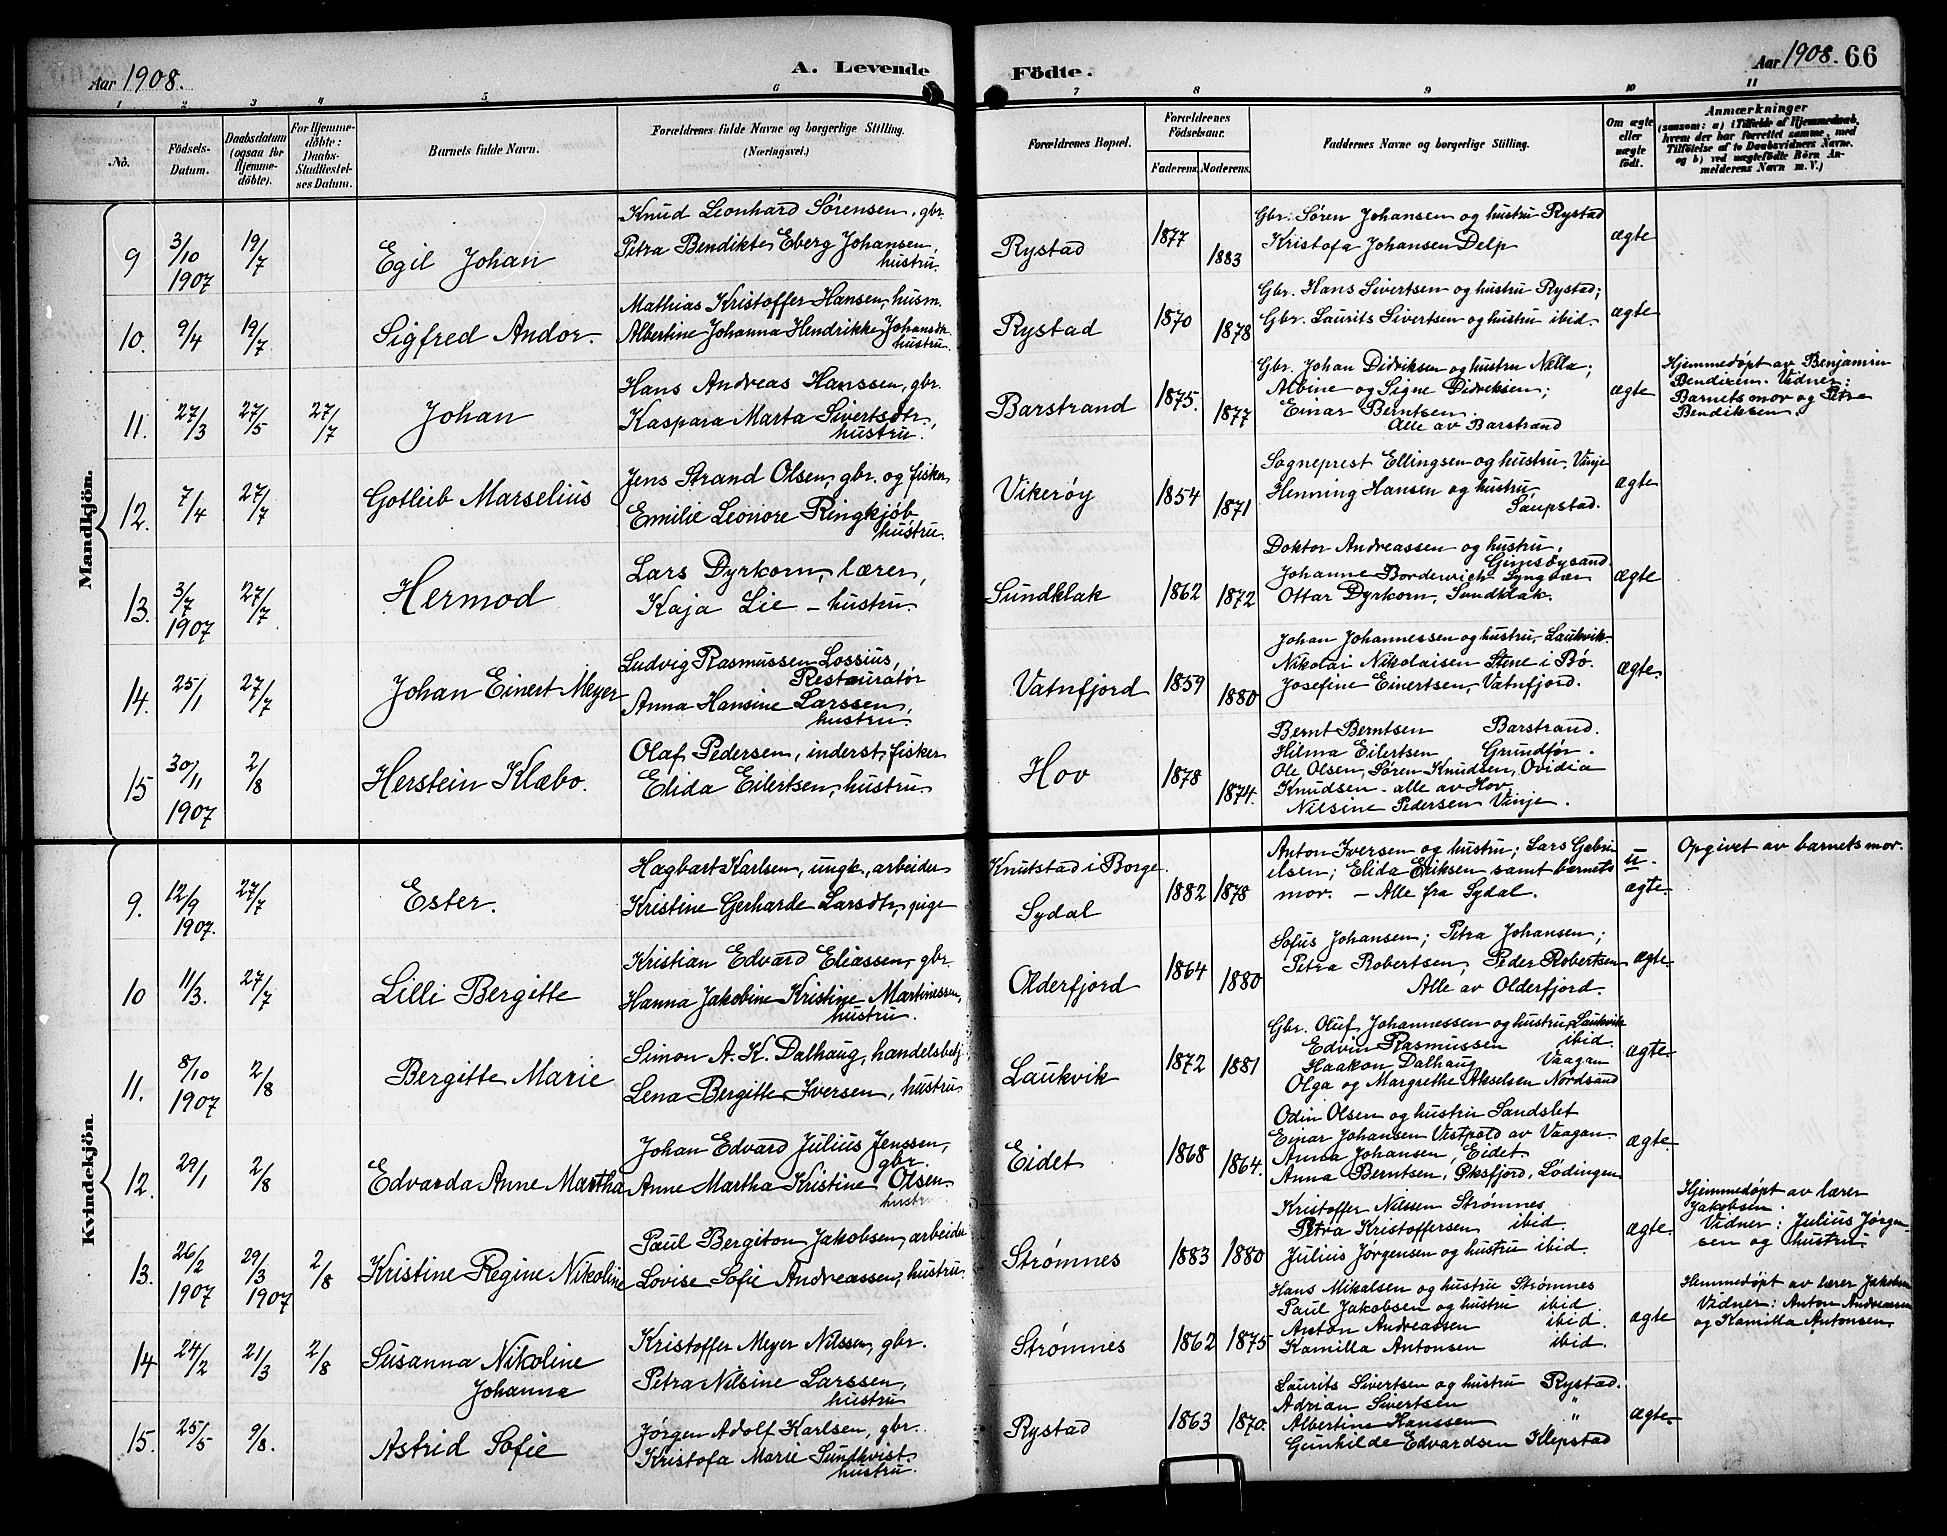 Aar 1908. A. Levende Födte. Aar 1908. 66
1 2 3 4 5 6 7 8 9 10 11
No. Födsels-Datum. Daabsdatum (ogsaa for Hjemme-döbte). For Hjemme-döbte: Daabs-Stadfæstel-ses Datum. Barnets fulde Navn. Forældrenes fulde Navne og borgerlige Stilling. (Næringsvei.) Forældrenes Bopæl. Forældrenes Födselsaar. Faderens. Moderens. Faddernes Navne og borgerlige Stilling. Om ægte eller uægte födt. Anmærkninger (saasom: a) i Tilfælde af Hjemmedaab, hvem der har forrettet samme, med Tilföielse af to Daabsvidners Navne, og b) ved uægtefödte Börn An-melderens Navn m. V.)
Mandkjön.
9 3/10 1907 19/7 Egil Johan
Knud Leonhard Sørensen, gbr.
Petra Bendikte Eberg Johansen, hustru.
Rystad 1877 1883
Gbr. Søren Johansen og hustru Rystad
Kristofa Johansen Delp
ægte
10. 9/4 19/7 Sigfred Andor.
Mathias Kristoffer Hansen, husm.
Albertine Johanna Hendrikke Johansdtr. hustru.
Rystad 1870 1878
Gbr. Hans Sivertsen og hustru Rystad;
Gbr. Laurits Sivertsen og hustru ibid.
ægte
11. 27/3 27/5 27/7 Johan
Hans Andreas Hanssen, gbr.
Kaspara Marta Sivertsdtr, hustru.
Barstrand 1875. 1877
Gbr. Johan Didriksen og hustru Nella;
Albine og Signe Didriksen;
Einar Berntsen.
Alle av Barstrand
ægte
Hjemmedøpt av Benjamin
Vidner:
Barnets mor og Petra
Bendiksen.
12. 7/4 27/7 Gotlieb Marselius
Jens Strand Olsen, gbr. og fisker
Emilie Leonore Ringkjøb hustru.
Vikerøy 1854 1871
Sogneprest Ellingsen og hustru, Vinje
Henning Hansen og hustru
Saupstad.
ægte
13. 3/7 1907 27/7 Hermod
Lars Dyrkorn, lærer,
Kaja Lie - hustru
Sundklak 1862 1872
Doktor Andreassen og hustru,
Gimsøysand.
Johanne
Ottar Dyrkorn, Sundklak.
ægte
14. 25/1 27/7 Johan Einert Meyer
Ludvig Rasmussen Lossius,
Restauratør
Anna Hansine Larssen,
hustru
Vatnfjord 1859 1880
Johan Johannessen og hustru, Laukvik.
Nikolai Nikolaisen Stene i Bø.
Josefine Einertsen, Vatnfjord.
ægte.
15 30/11 1907 2/8 Herstein Klæbo.
Olaf Pedersen, inderst, fisker
Elida Eilertsen, hustru
Hov 1878 1874.
Bernt Berntsen Barstrand.
Hilma Eilertsen Grundfør.
Ole Olsen, Søren Knudsen, Ovidia
Knudsen - alle av Hov
Nilsine Pedersen Vinje.
Kvindekjön.
9. 12/9 1907. 27/7 Ester.
Hagbart Karlsen, ungk., arbeider
Kristine Gerharde Larsdtr, pige
Knutstad i Borge.
Sydal
1882 1878
Anton Iversen og hustru; Lars Gabri
elsen; Elida Eriksen samt barnets
mor. - Alle fra Sydal.
u-
ægte.
Opgivet av barnets mor.
10 11/3. 27/7 Lilli Bergitte
Kristian Edvard Eliassen, gbr.
Hanna Jakobine Kristine Martinessen, hustru.
Olderfjord 1864 1880
Sofus Johansen; Petra Johansen;
Petra Robertsen, Peder Robertsen
Alle av Olderfjord.
ægte.
11. 8/10 1907 2/8 Bergitte Marie
Simon A. K. Dalhaug, handelsbetj.
Lena Bergitte Iversen, hustru
Laukvik 1872 1881
Gbr. Oluf Johannessen og hustru, Laukvik
Edvin Rasmussen ibid.
Haakon Dalhaug Vaagan
Olga og Margrethe Akselsen Nordsand
ægte
12. 29/1 2/8 Edvarda Anne Martha
Johan Edvard Julius Jenssen,
gbr.
Anne Martha Kristine Olsen
hustru
Eidet 1868 1864.
Odin Olsen og hustru Sandslet
Einar Johansen Vestpold av Vaagan.
Anna Johansen, Eidet
Anna Berntsen, Øksfjord, Lødingen
ægte.
13. 26/2 1907 29/3 1907 2/8 Kristine Regine Nikoline
Paul Bergiton Jakobsen, arbeider
Lovise Sofie Andreassen, hustru.
Strømnes 1883 1880
Kristoffer Nilsen Strømnes
Petra Kristoffersen ibid.
Julius Jørgensen og hustru ibid.
ægte.
Hjemmedøpt av lærer
Jakobsen.
Vidner: Julius Jørgen-
sen og hustru.
14 24/2 21/3 2/8 Susanna Nikoline
Johanna
Kristoffer Meyer Nilssen, gbr.
Petra Nilsine Larssen,
hustru
Strømnes 1862 1875
Hans Mikalsen og hustru Strømnes
Paul Jakobsen og hustru ibid.
Anton Andreassen ibid.
Kamilla Antonsen ibid.
ægte
Hemmedøpt av lærer Jakobsen
Vidner: Anton Andreassen
og Kamilla Antonsen.
15. 25/5 9/8. Astrid Sofie
Jørgen Adolf Karlsen, gbr.
Kristofa Marie Sundkvist.
hustru.
Rystad 1863 1870.
Laurits Sivertsen og hustru Rystad.
Adrian Sivertsen
Albertine Hanssen "
Gunhilde Edvardsen Klepstad
ægte.